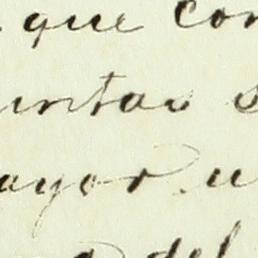 que con
untas
ayor u
del